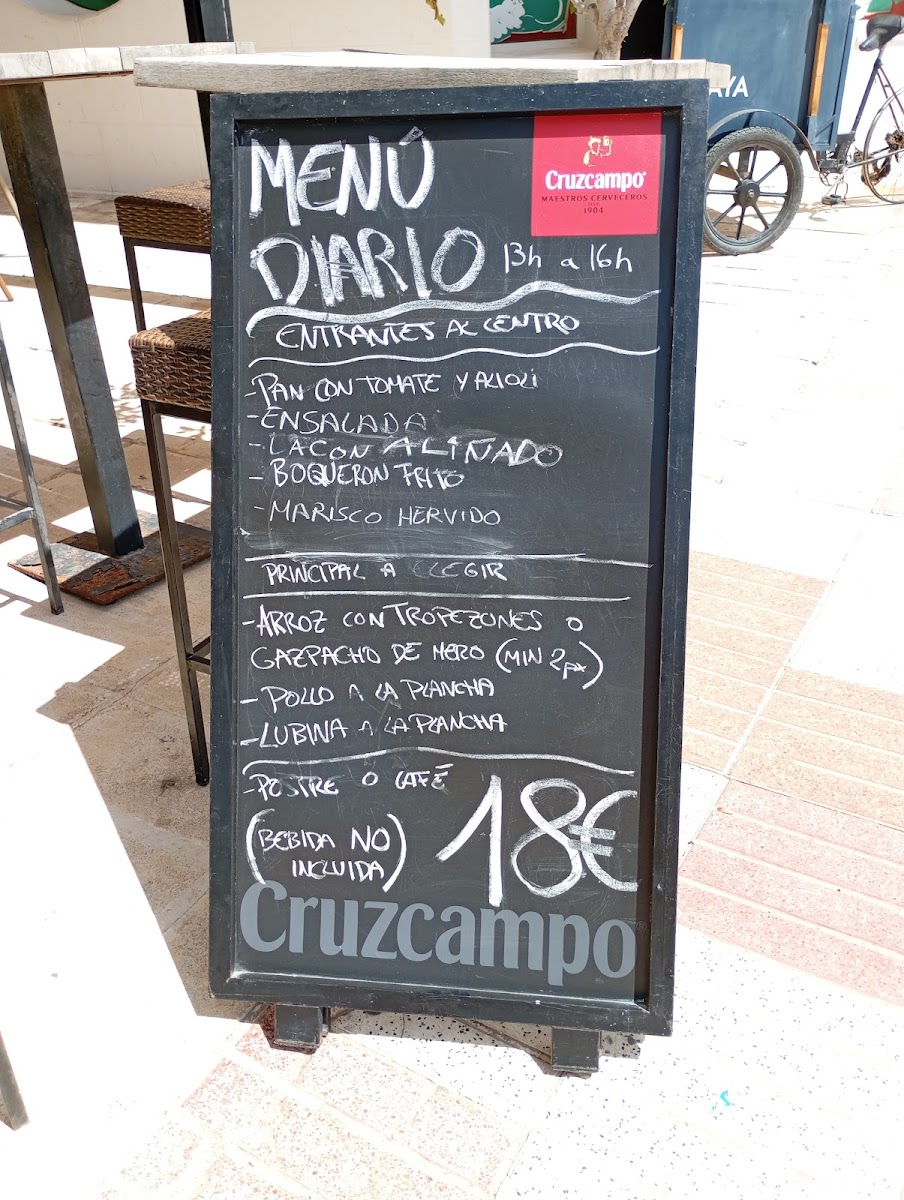 MENÚ
Cruzcampo
MAESTROS CERVECEROS
1904
DIARIO 13h a 16h
ENTRANTES AL CENTRO
-PAN CON TOMATE Y ALIOLI
-ENSALADA
-LACON ALIÑADO
- BOQUERON FRITO
-MARISCO HERVIDO
PRINCIPAL A ELEGIR
-ARROZ CON TROPEZONES O
GAZPACHO DE MERO (MIN 2px)
- POLLO A LA PLANCHA
-LUBINA A LA PLANCHA
-POSTRE O CAFÉ
(BEBIDA NO
INCLUIDA)
18€
Cruzcampo
AYA